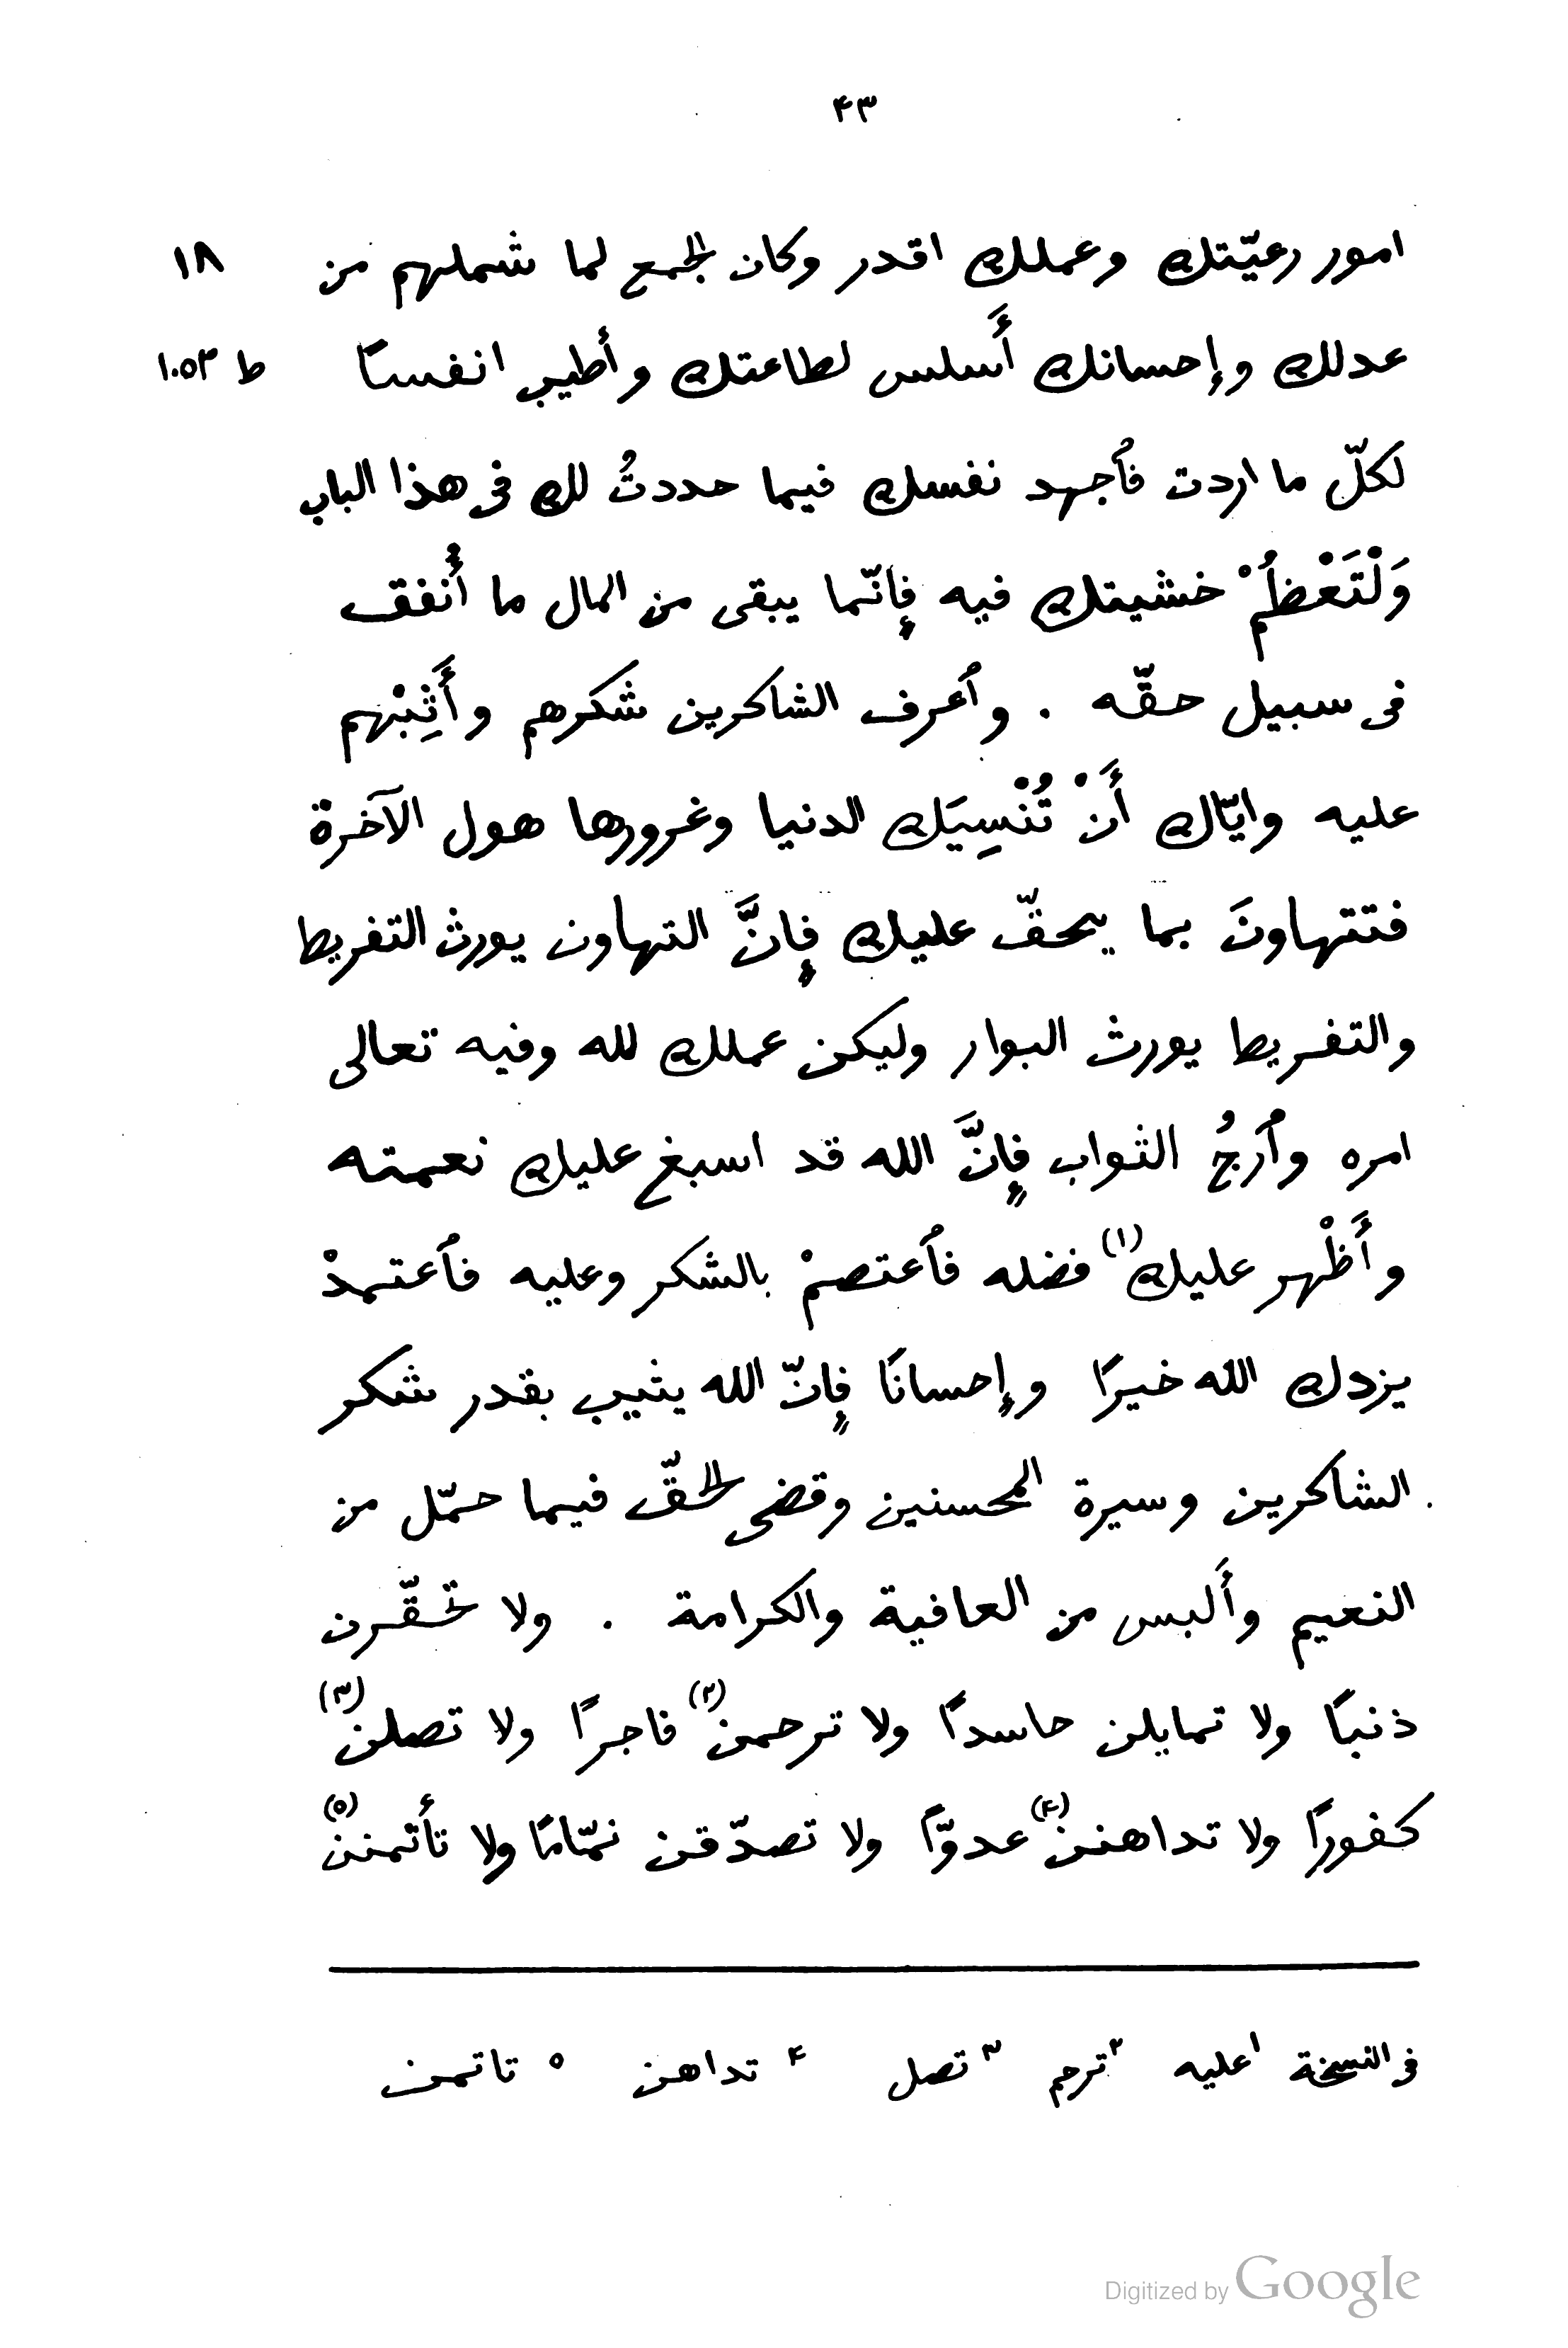 ٤٣
امور رعيّتك وعملك اقدر وكان الجمع لما شملهم من ١٨
عدلك وإحسانك أَسلس لطاعتك وأطيب انفسًا ط ١٠٥٣
لكلّ ما اردت فٱجهد نفسك فيما حددتُ لك فى هذا الباب
وَلْتَعْظُمْ خشيتك فيه فإنّما يبقى من المال ما أُنفق
فى سبيل حقّه . وٱعرف الشاكرين شكرهم وأَثِبْهم
عليه وايّاك أَنْ تُنْسِيَك الدنيا وغرورها هول الآخرة
فتتهاونَ بما يحقّ عليك فإنَّ التهاون يورث التفريط
والتفريط يورث البوار وليكن عملك لله وفيه تعالى
امره وٱرجُ الثواب فإنَّ الله قد اسبغ عليك نعمته
وأَظْهر عليك(١) فضله فٱعتصمْ بالشكر وعليه فٱعتمدْ
يزدك الله خيرًا وإحسانًا فإنّ الله يثيب بقدر شكر
الشاكرين وسيرة المحسنين وقضى الحقّ فيما حمّل من
النعيم وأَلبس من العافية والكرامة . ولا تحقّرن
ذنبًا ولا تمايلن حاسدًا ولا ترحمن(٢) فاجرًا ولا تصلن(٣)
كفورًا ولا تداهنن(٤) عدوًّا ولا تصدّقن نمّامًا ولا تأتمنن(٥)
فى النسخة ١ عليه ٢ ترحم ٣ تصل ٤ تداهن ٥ تاتمن
Digitized by Google